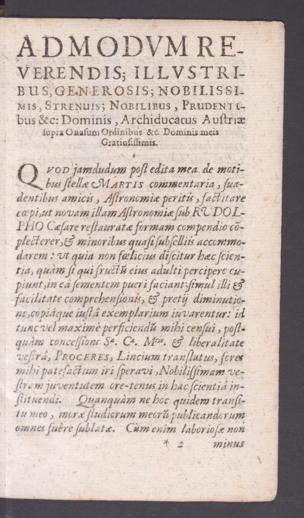 ADMODVM RE-
VERENDIS; ILLVSTRI-
BUS, GENEROSIS; NOBILISSI-
MIS, STRENUIS; NOBILIBUS, PRUDENTI-
bus &c: Dominis, Archiducatus Austriæ
supra Onasum Ordinibus &c. Dominis meis
Gratiosissimis.
QVOD jamdudum post edita mea de moti-
bus stellæ MARTIS commentaria, sua-
dentibus amicis, Astronomiæ peritis, factitare
cœpi, ut novam illam Astronomiæ sub RUDOL-
PHO Cæsare restauratæ formam compendio cō-
plecterer, & minoribus quasi subselliis accommo-
darem: ut quia non fœlicius discitur hæc scien-
tia, quàm si qui fructũ eius adulti percipere cu-
piunt, in eâ sementem pueri faciant: simul illi &
facilitate comprehensionis, & pretij diminutio-
ne, copiâque iustâ exemplarium iuvarentur: id
tunc vel maximè perficiendũ mihi censui, post-
quàm concessione Sæ. Cæ. Mtis. & liberalitate
vestrâ, PROCERES, Lincium translatus, fores
mihi patefactum iri speravi, Nobilissimam ve-
stram juventutem ore-tenus in hac scientiâ in-
stituendi. Quanquàm ne hoc quidem transi-
tu meo, moræ studiorum meorũ publicandorum
omnes fuêre sublatæ. Cùm enim laboriosæ non
* 2 minus